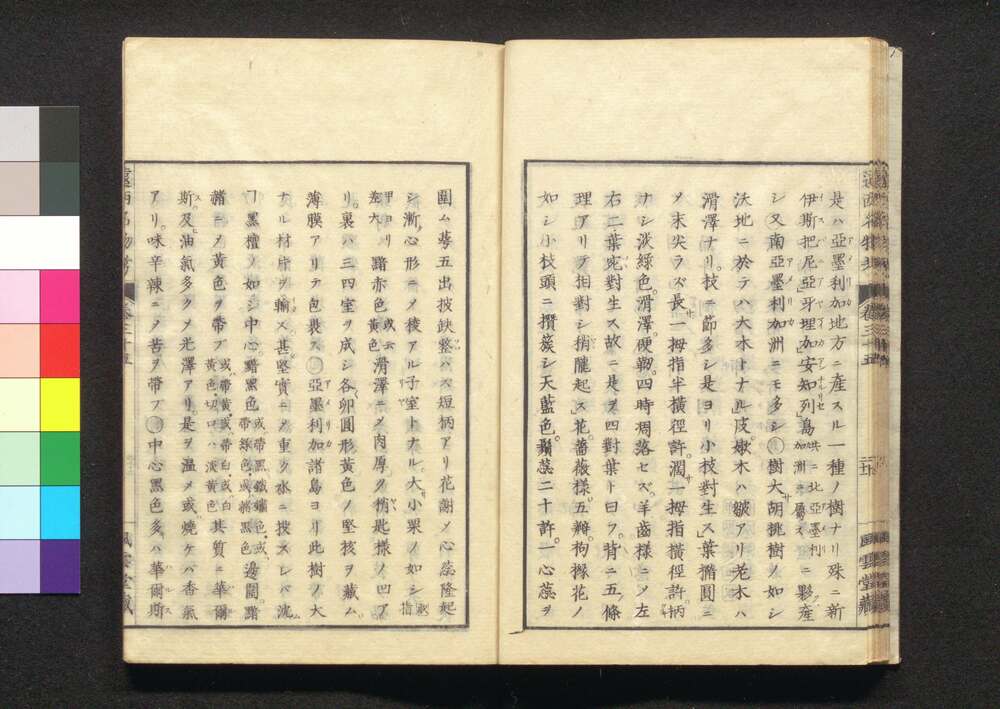 是ハ亞墨利加地方ニ產スル一種ノ樹ナリ殊ニ新
伊斯把尼亞牙埋加安知列島共ニ北亞墨利加洲ニ屬スニ夥產
シ又南亞墨利加洲ニモ多シ樹大胡桃樹ノ如シ
沃地ニ於テハ大木トナル皮嫩木ハ皺アリ老木ハ
滑澤ナリ枝ニ節多シ是ヨリ小枝對生ス葉橢圓ニ
メ末尖ラズ長一拇指半橫徑許濶一拇指橫徑許柄
ナシ淡綠色滑澤硬靱四時凋落セズ羊齒樣ニメ左
右二葉宛對生ス故ニ是ヲ四對葉ト曰フ背ニ五條
理アリテ相對シ稍朧起ス花薔薇樣五瓣枸櫞花ノ
如シ小枝頭ニ攢簇シ天藍色鬚蕊二十許一心蕊ヲ
遠西名物考 卷三十五 二十 風雲堂藏
圍ム萼五出披缺整ハス短柄アリ花謝メ心蕊隆起
シ漸心形ニメ稜アル子室トナル大小栗ノ如シ
甲ヨリ大黯赤色或云黃色滑澤ニメ肉厚ク稍匙樣ノ凹ア
リ裏ハ三四室ヲ成シ各卵圓形黃色ノ堅核ヲ藏ム
薄膜アリテ包裹ス亞墨利加諸島ヨリ此樹ノ大
ナル材片ヲ輸ス甚堅實ニメ重ク水ニ投スレバ沈
ヿ黑檀ノ如シ中心黯黑色或帶黑鐵鏽色或帶綠色或褐黑色邊圍黯
諸ニメ黃色ヲ帶ブ或帶黃或帶白或白黃色切口ハ淡黃色其質ニ華爾
斯及油氣多クメ光澤アリ是ヲ溫メ或燒ケバ香氣
アリ味辛辣ニメ苦ヲ帶ブ中心黑色多ハ華爾斯